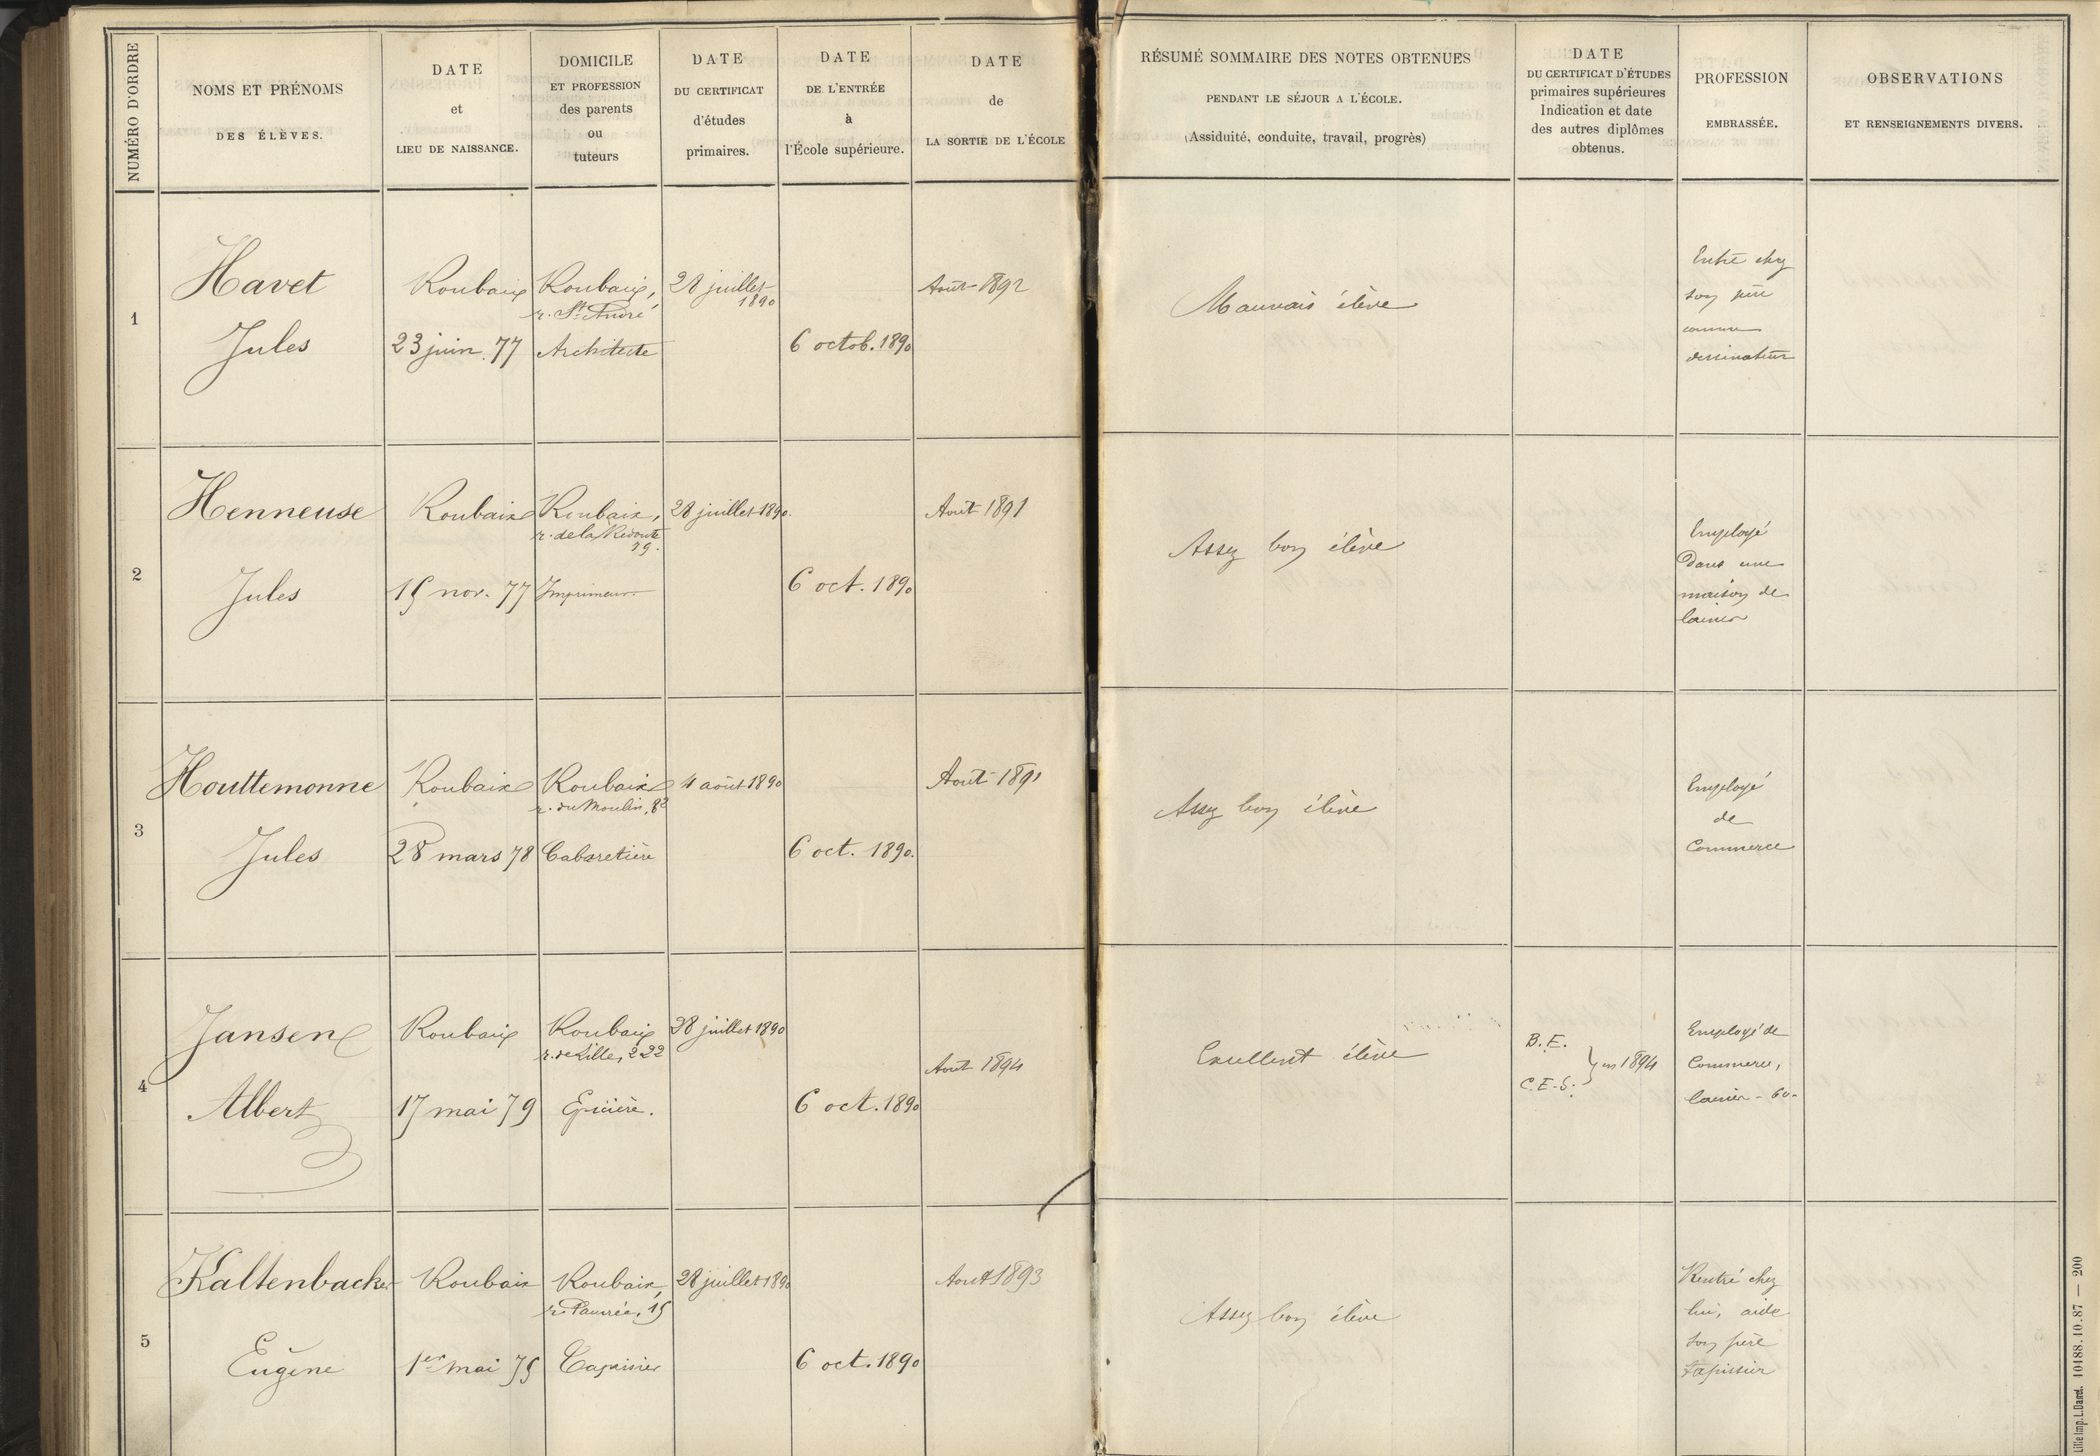 NUMÉRO D'ORDRE
NOMS ET PRÉNOMS
DES ÉLÈVES.
DATE
et
LIEU DE NAISSANCE.
DOMICILE
ET PROFESSION
des parents
ou
tuteurs
DATE
DU CERTIFICAT
d'études
primaires.
DATE
DE L'ENTRÉE
à
l'École supérieure.
DATE
de
LA SORTIE DE L'ÉCOLE
RÉSUMÉ SOMMAIRE DES NOTES OBTENUES
PENDANT LE SÉJOUR A L'ÉCOLE.
(Assiduité, conduite, travail, progrès)
DATE
DU CERTIFICAT D'ÉTUDES
primaires supérieures
Indication et date
des autres diplômes
obtenus.
PROFESSION
EMBRASSÉE.
OBSERVATIONS
ET RENSEIGNEMENTS DIVERS.
1
Havet
Jules
Roubaix
23 juin 77
Roubaix,
r. St André
Architecte
28 juillet
1890
6 octob. 1890
Août 1892
Mauvais élève
Entré chez
son père
comme
dessinateur
2
Henneuse
Jules
Roubaix
15 nov. 77
Roubaix,
r. de la Redoute
79.
Imprimeur
28 juillet 1890.
6 oct. 1890
Août 1891
Assez bon élève
Employé
dans une
maison de
laines
3
Houttemonne
Jules
Roubaix
28 mars 78
Roubaix
r. du Moulin, 82
Cabaretière
4 août 1890
6 oct. 1890.
Août 1891
Assez bon élève
Employé
de
Commerce
4
Jansen
Albert
Roubaix
17 mai 79
Roubaix
r. de Lille, 222
Epicière.
28 juillet 1890
6 oct. 1890
Août 1894
Excellent élève
B.E.
C.E.S. } en 1894
Employé de
Commerce,
5
Kaltenbacker
Eugène
Roubaix
1er mai 75
Roubaix,
r. Pauvrée, 15
Tapissier
28 juillet 1890
6 oct. 1890
Août 1893
Assez bon élève
Rentré chez
lui, aide
son père
tapissier
Lille Imp. L. Danel. 10188.10.87 — 200